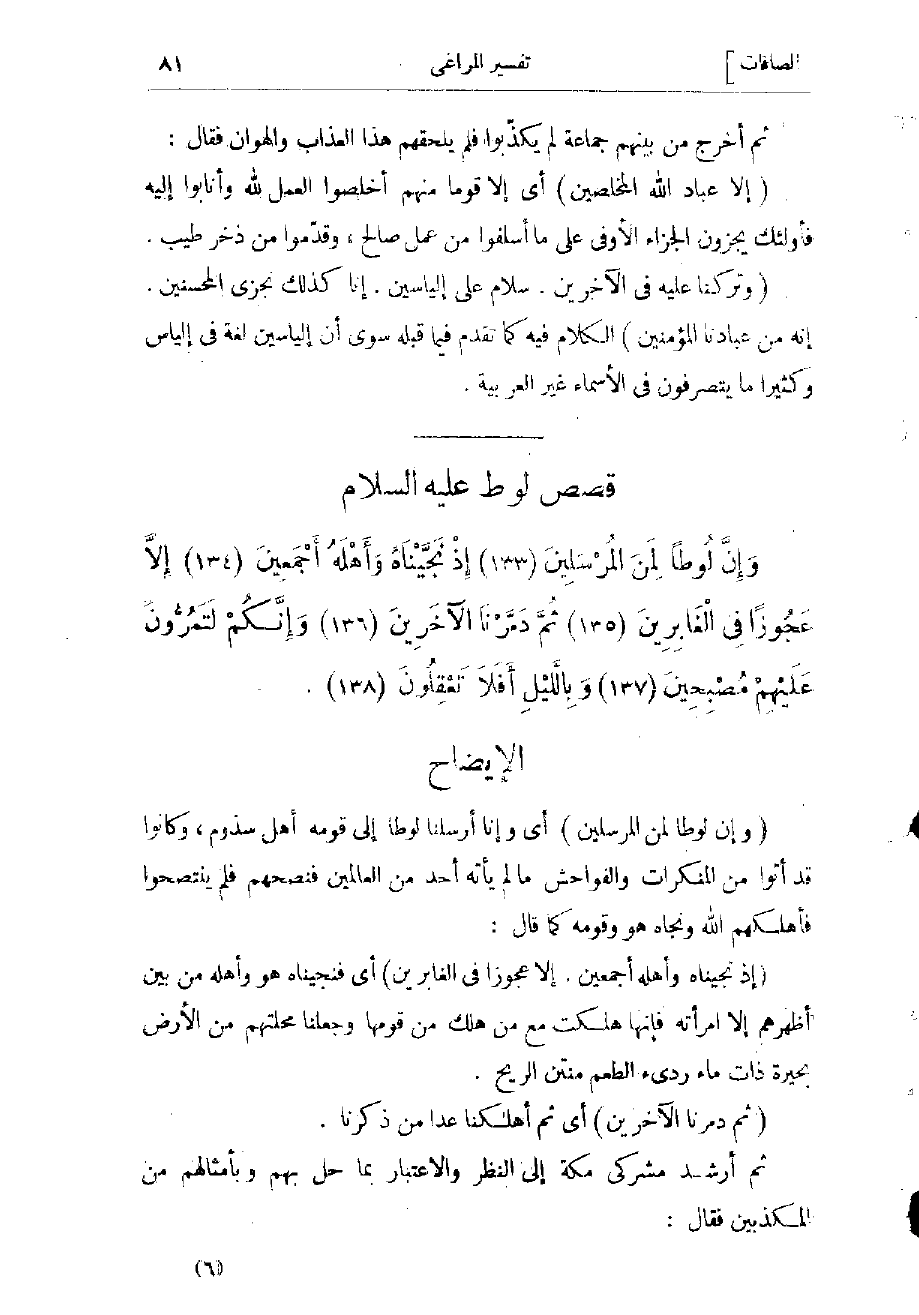 الصافات]
تفسير المراغى
٨١
ثم أخرج من بينهم جماعة لم يكذّبوا فلم يلحقهم هذا العذاب والهوان فقال :
( إلا عباد الله المخلصين ) أى إلا قوما منهم أخلصوا العمل لله وأنابوا إليه
فأولئك يجزون الجزاء الأوفى على ما أسلفوا من عمل صالح ، وقدّموا من ذخر طيب .
( وتركنا عليه فى الآخرين . سلام على إلياسين . إنا كذلك نجزى المحسنين .
إنه من عبادنا المؤمنين ) الكلام فيه كما تقدم فيما قبله سوى أن إلياسين لغة فى إلياس
وكثيرا ما يتصرفون فى الأسماء غير العربية .
قصص لوط عليه السلام
وَإِنَّ لُوطًا لَمِنَ الْمُرْسَلِينَ (١٣٣) إِذْ نَجَّيْنَاهُ وَأَهْلَهُ أَجْمَعِينَ (١٣٤) إِلاَّ
عَجُوزًا فِى الْغَابِرِينَ (١٣٥) ثُمَّ دَمَّرْنَا الْآخَرِينَ (١٣٦) وَإِنَّكُمْ لَتَمُرُّونَ
عَلَيْهِمْ مُصْبِحِينَ (١٣٧) وَبِاللَّيْلِ أَفَلَا تَعْقِلُونَ (١٣٨) .
الإيضاح
( وإن لوطا لمن المرسلين ) أى وإنا أرسلنا لوطا إلى قومه أهل سذوم ، وكانوا
قد أتوا من المنكرات والفواحش ما لم يأته أحد من العالمين فنصحهم فلم ينتصحوا
فأهلكهم الله ونجاه هو وقومه كما قال :
(إذ نجيناه وأهله أجمعين . إلا عجوزا فى الغابرين) أى فنجيناه هو وأهله من بين
أظهرهم إلا امرأته فإنها هلكت مع من هلك من قومها وجعلنا محلتهم من الأرض
بحيرة ذات ماء ردىء الطعم منتن الريح .
( ثم دمرنا الآخرين ) أى ثم أهلكنا عدا من ذكرنا .
ثم أرشد مشركى مكة إلى النظر والاعتبار بما حل بهم وبأمثالهم من
المكذبين فقال :
(٦)